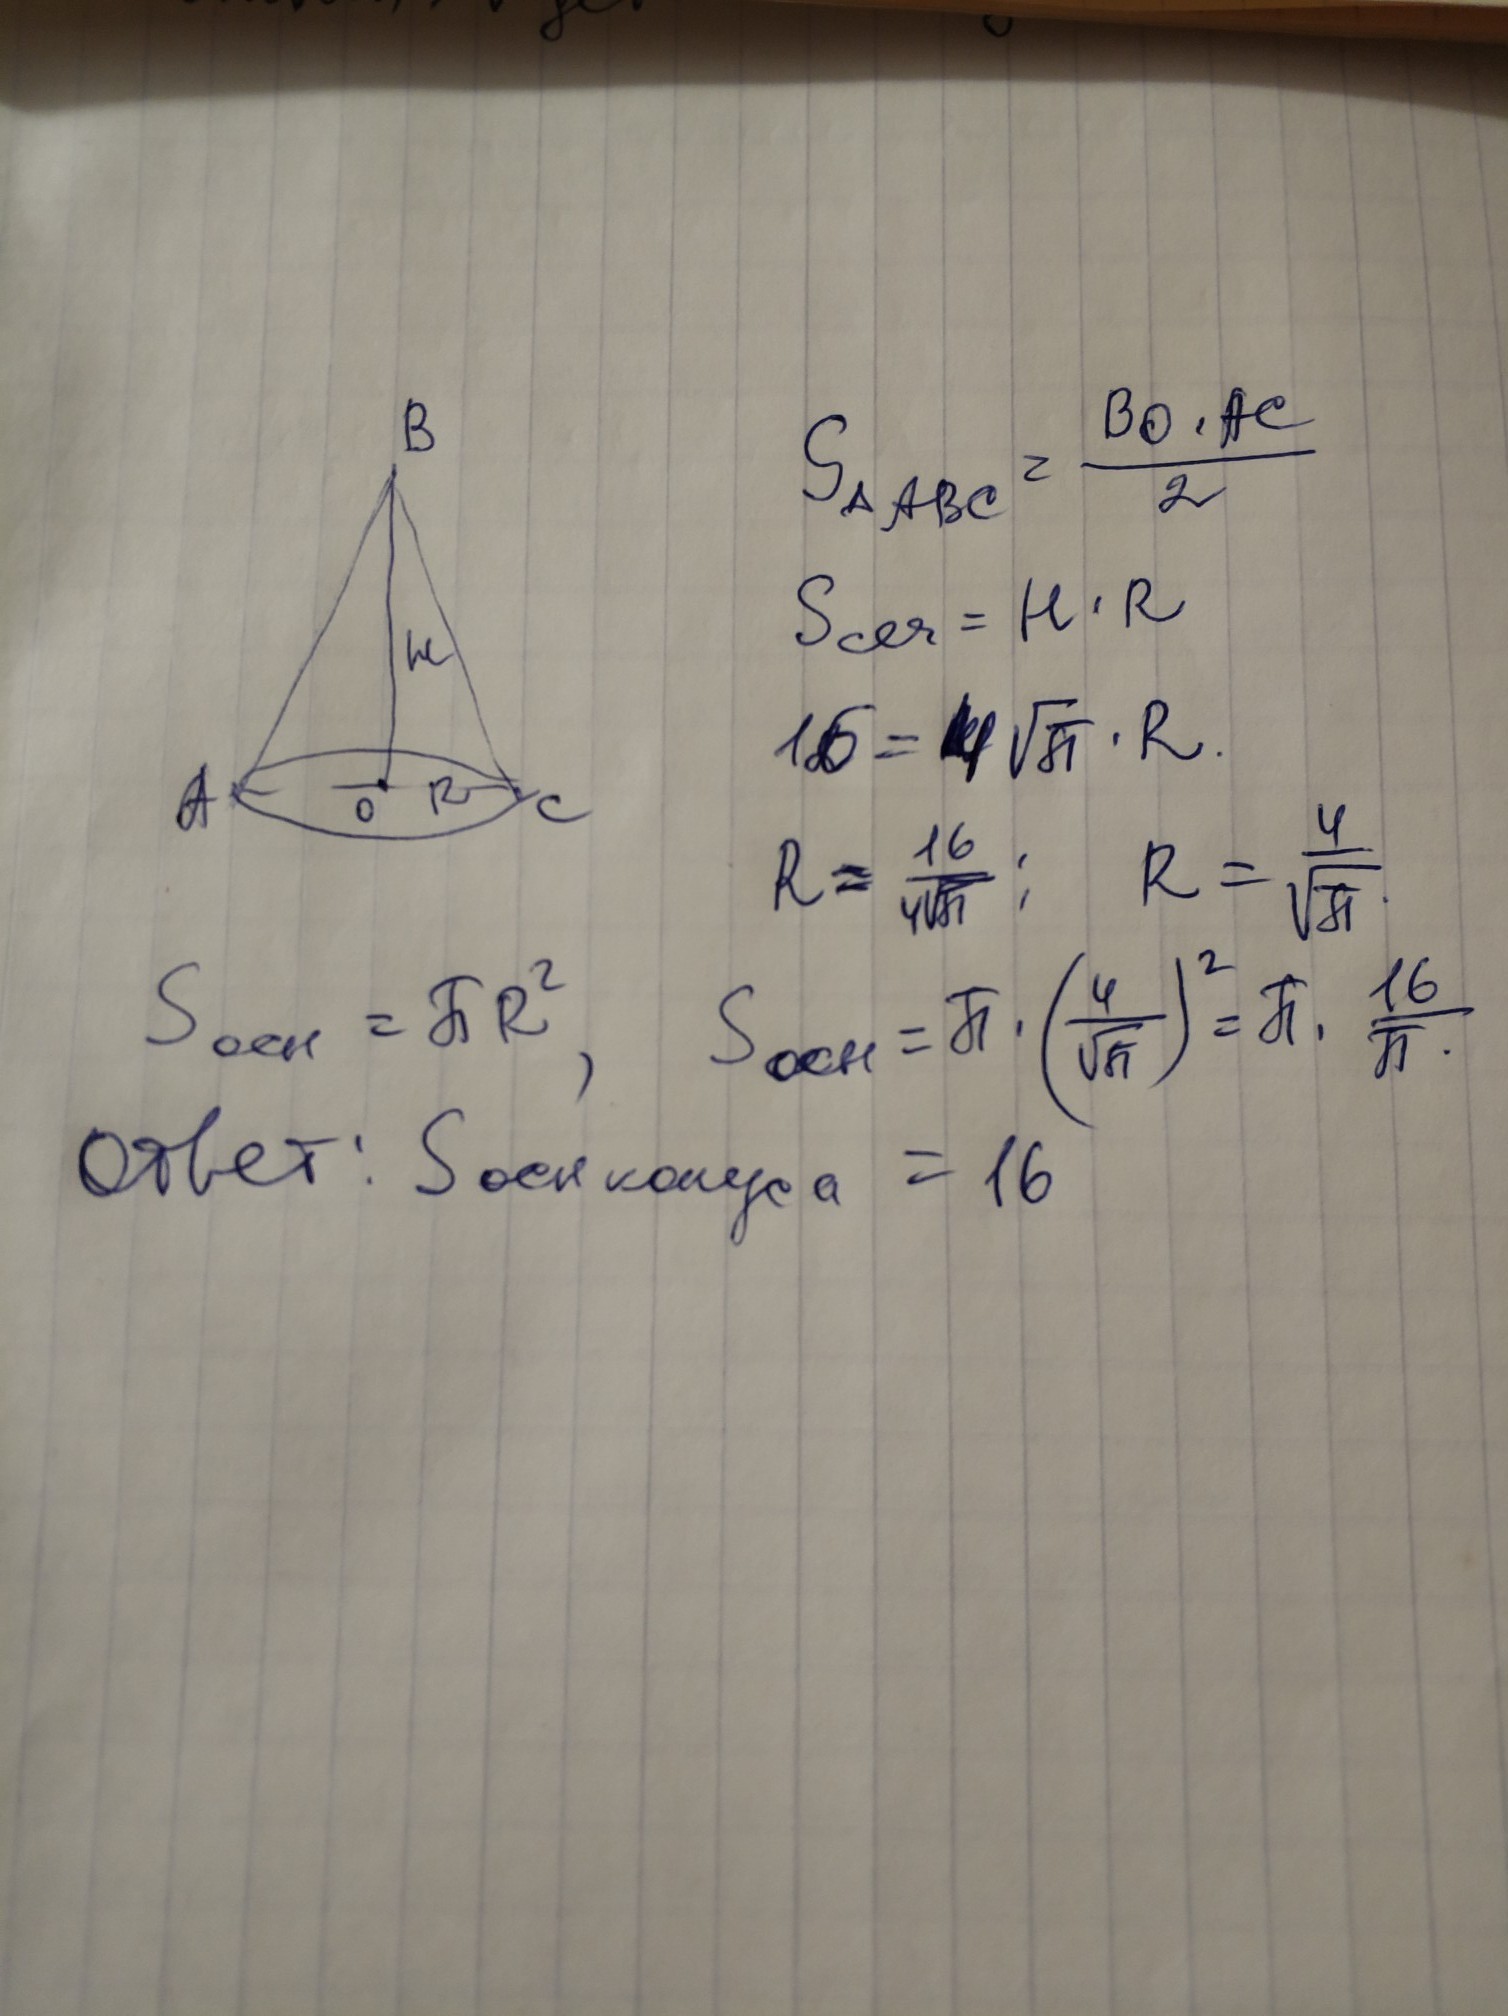 B
S△ABC = BO · AC / 2
Sсеч = H · R
H
16 = 4√π · R.
A O R C
R = 16 / 4√π ; R = 4 / √π.
Sосн = πR², Sосн = π · (4 / √π)² = π · 16 / π.
Ответ: Sосн конуса = 16